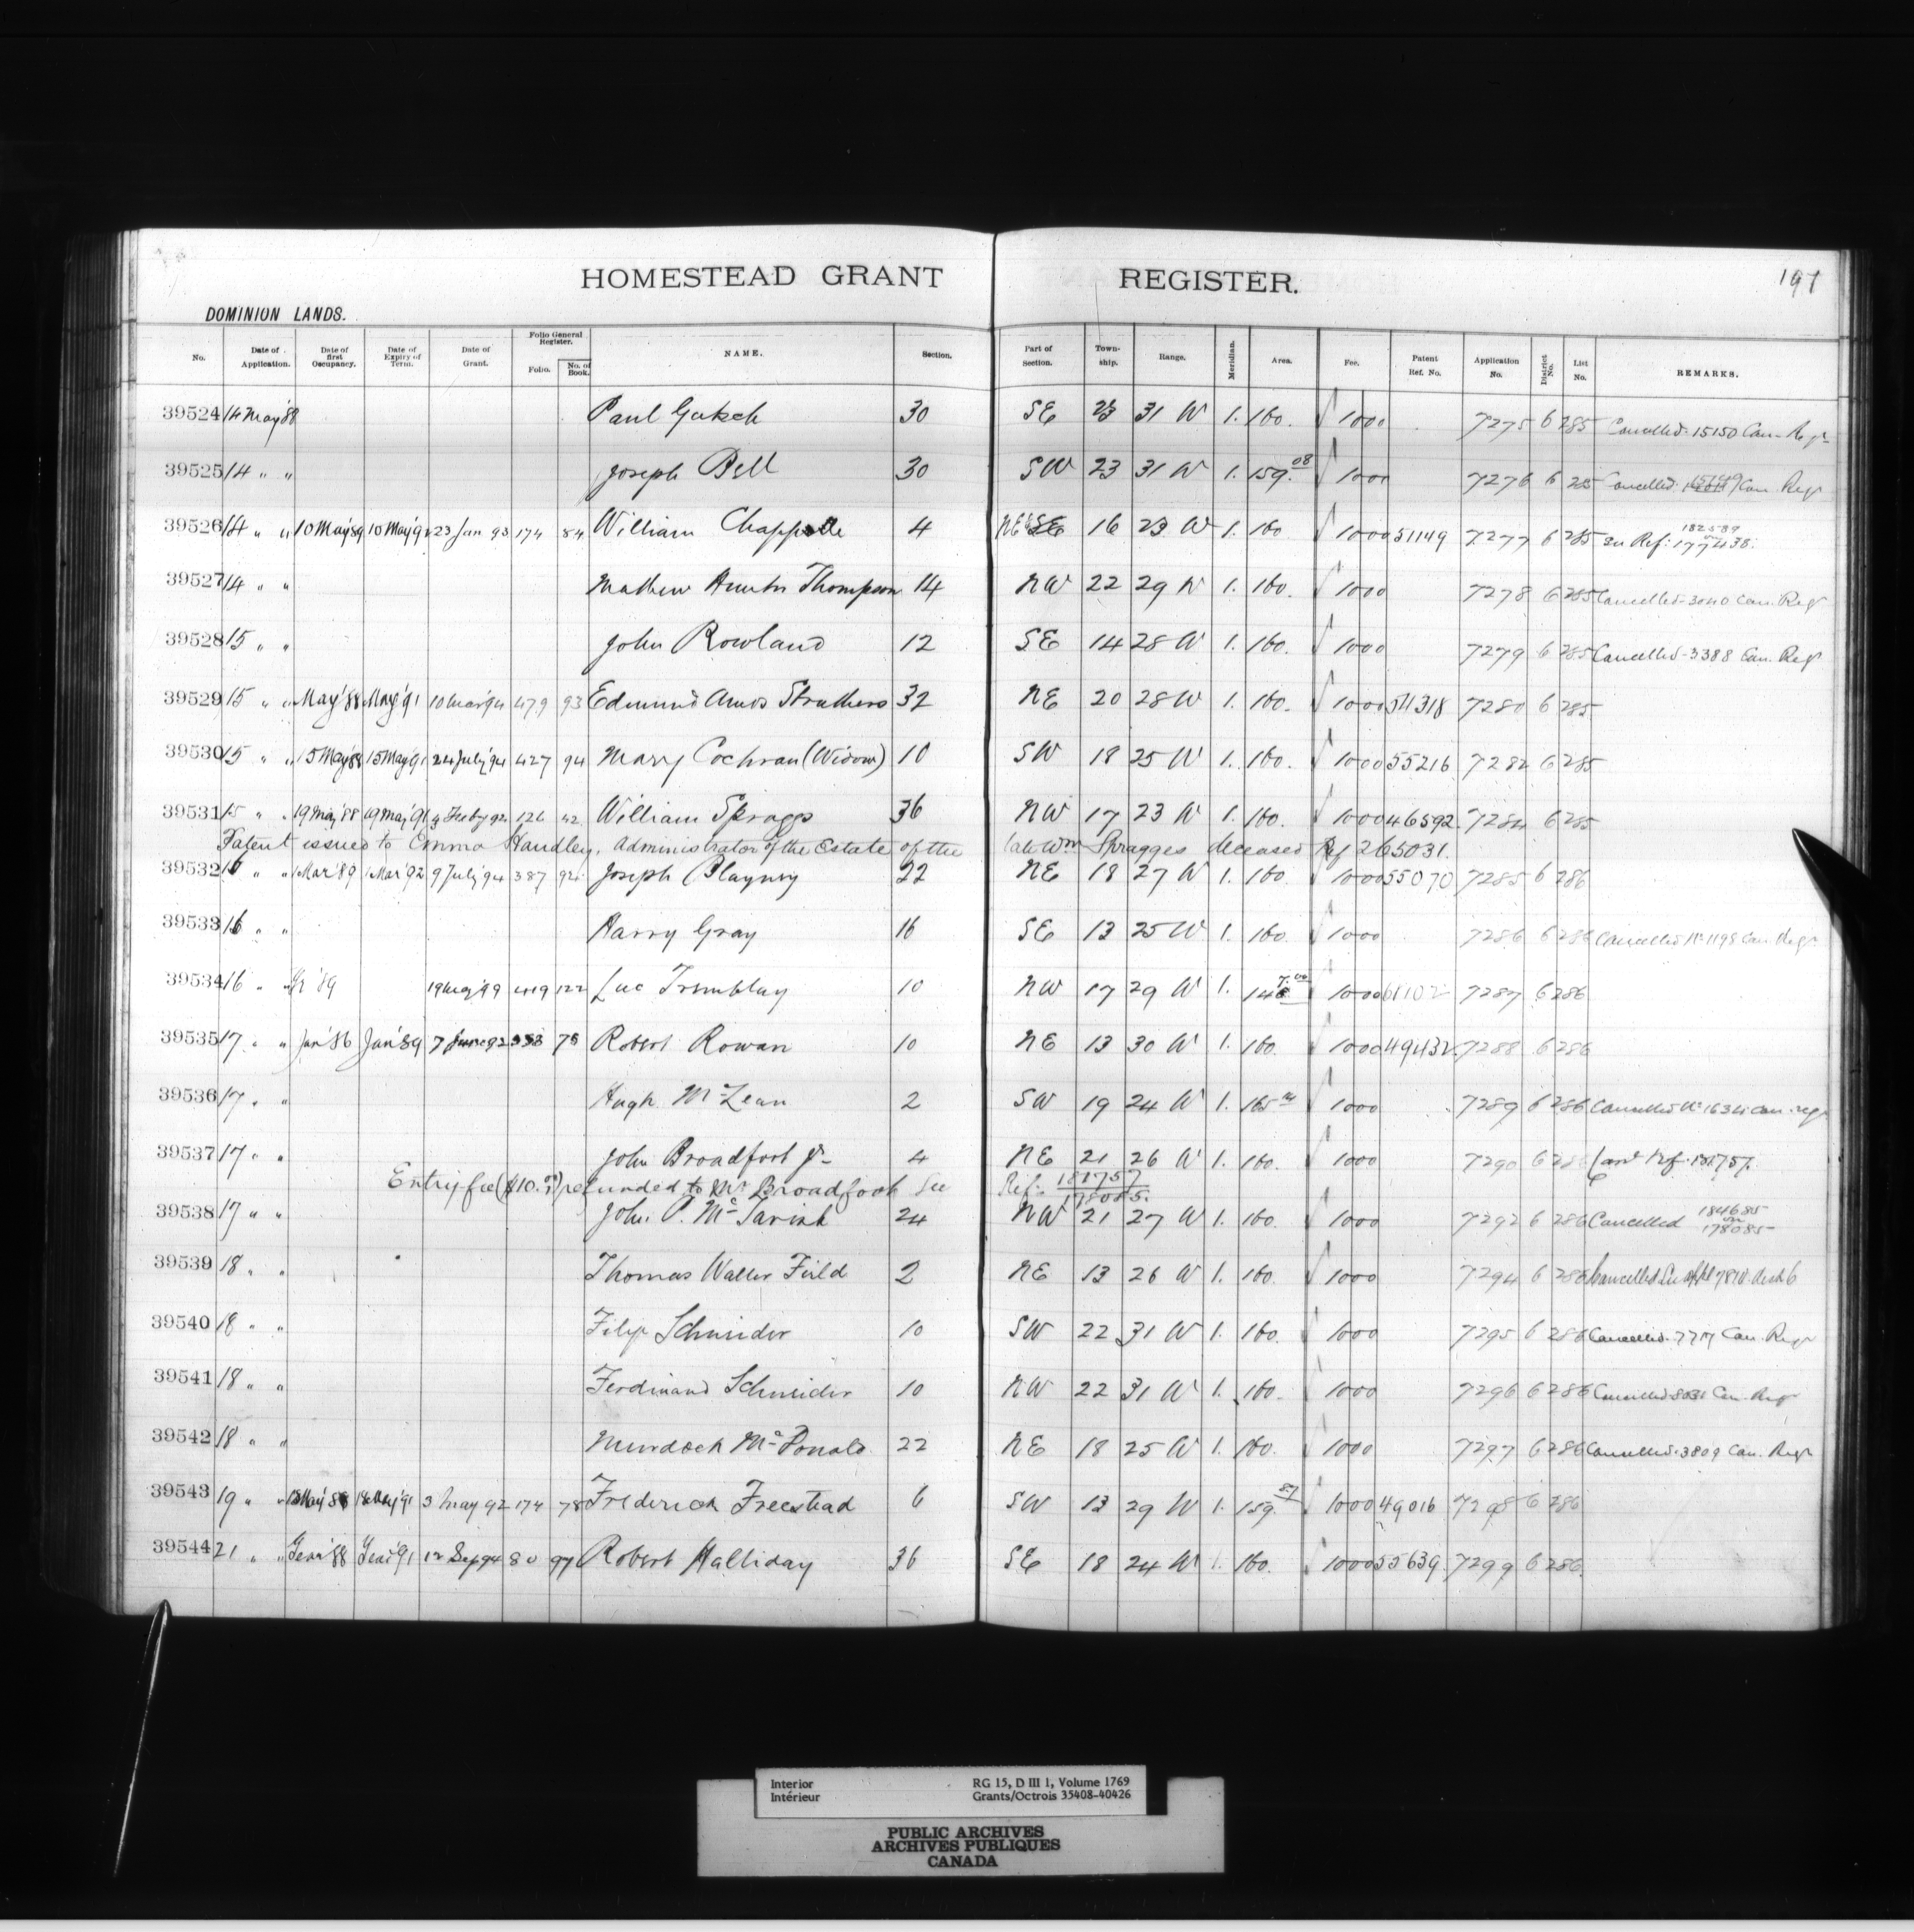 HOMESTEAD GRANT REGISTER. 197
DOMINION LANDS.
No. Date of Application. Date of first Occupancy. Date of Expiry of Term. Date of Grant. Folio General Register. Folio. No. of Book. NAME. Section. Part of Section. Township. Range. Meridian. Area. Fee. Patent Ref. No. Application No. District No. List No. REMARKS.
39524 14 May '88 Paul 30 SE 23 31 W 1. 160. 1000 7275 6 285 Cancelled. 15150 Can. Regr
39525 14 " " Joseph Bell 30 SW 23 31 W 1. 159.08 1000 7276 6 285 Cancelled. Can. Regr
39526 14 " " 10 May '89 10 May '92 23 Jan 93 174 84 William Chappelle 4 NE¼ SE 16 23 W 1. 160 1000 51149 7277 6 285 See Ref: 177438. 182589
39527 14 " " Mathew Hunter Thompson 14 NW 22 29 W 1. 160. 1000 7278 6 285 Cancelled 3040 Can. Regr
39528 15 " " John Rowland 12 SE 14 28 W 1. 160. 1000 7279 6 285 Cancelled 3388 Can. Regr
39529 15 " " May '88 May '91 10 Mar '94 479 93 Edmund Amos Struthers 32 NE 20 28 W 1. 160. 1000 54318 7280 6 285
39530 15 " " 15 May '88 15 May '91 24 July '94 427 94 Mary Cochran (Widow) 10 SW 18 25 W 1. 160. 1000 55216 7282 6 285
39531 15 " " 19 May '88 19 May '91 4 Feby 92 126 42 William Spraggs 36 NW 17 23 W 1. 160. 1000 46592 7284 6 285
Patent issued to Emma Handley, Administrator of the Estate of the late Wm Spragges deceased Rf 265031.
39532 16 " " 1 Mar '89 1 Mar '92 9 July '94 387 94 Joseph Blayney 22 NE 18 27 W 1. 160. 1000 55070 7285 6 286
39533 16 " " Harry Gray 16 SE 13 25 W 1. 160. 1000 7286 6 286 Cancelled No 1198 Can. Regr
39534 16 " " '89 19 99 419 122 Luc Tremblay 10 NW 17 29 W 1. 1000 61102 7287 6 286
39535 17 " " Jan '86 Jan '89 7 June 92 338 78 Robert Rowan 10 NE 13 30 W 1. 160. 1000 49432 7288 6 286
39536 17 " " Hugh McLean 2 SW 19 24 W 1. 165 1000 7289 6 286 Cancelled No 1634 Can. regr
39537 17 " " John Broadfoot Jr 4 NE 21 26 W 1. 160. 1000 7290 6 286 Cand Ref. 181757.
Entry fee ($10.00) refunded to Mr Broadfoot See Ref: 181757 178085.
39538 17 " " John P. McTavish 24 NW 21 27 W 1. 160. 1000 7292 6 286 Cancelled 184685 on 178085
39539 18 " " Thomas Walter Field 2 NE 13 26 W 1. 160. 1000 7294 6 286 Cancelled. See appl 7810 dist 6
39540 18 " " Filip Schneider 10 SW 22 31 W 1. 160. 1000 7295 6 286 Cancelled. 7717 Can. Regr
39541 18 " " Ferdinand Schneider 10 NW 22 31 W 1. 160. 1000 7296 6 286 Cancelled Can. Regr
39542 18 " " Murdock McDonald 22 NE 18 25 W 1. 160. 1000 7297 6 286 Cancelled. 3809 Can. Regr
39543 19 " " 18 May '88 18 May '91 3 May 92 174 78 Frederick Freestead 6 SW 13 29 W 1. 159. 1000 49016 7298 6 286
39544 21 " " '88 '91 12 Sep 94 80 97 Robert Halliday 36 SE 18 24 W 1. 160. 1000 55639 7299 6 286
Interior RG 15, D III 1, Volume 1769
Intérieur Grants/Octrois 35408-40426
PUBLIC ARCHIVES
ARCHIVES PUBLIQUES
CANADA